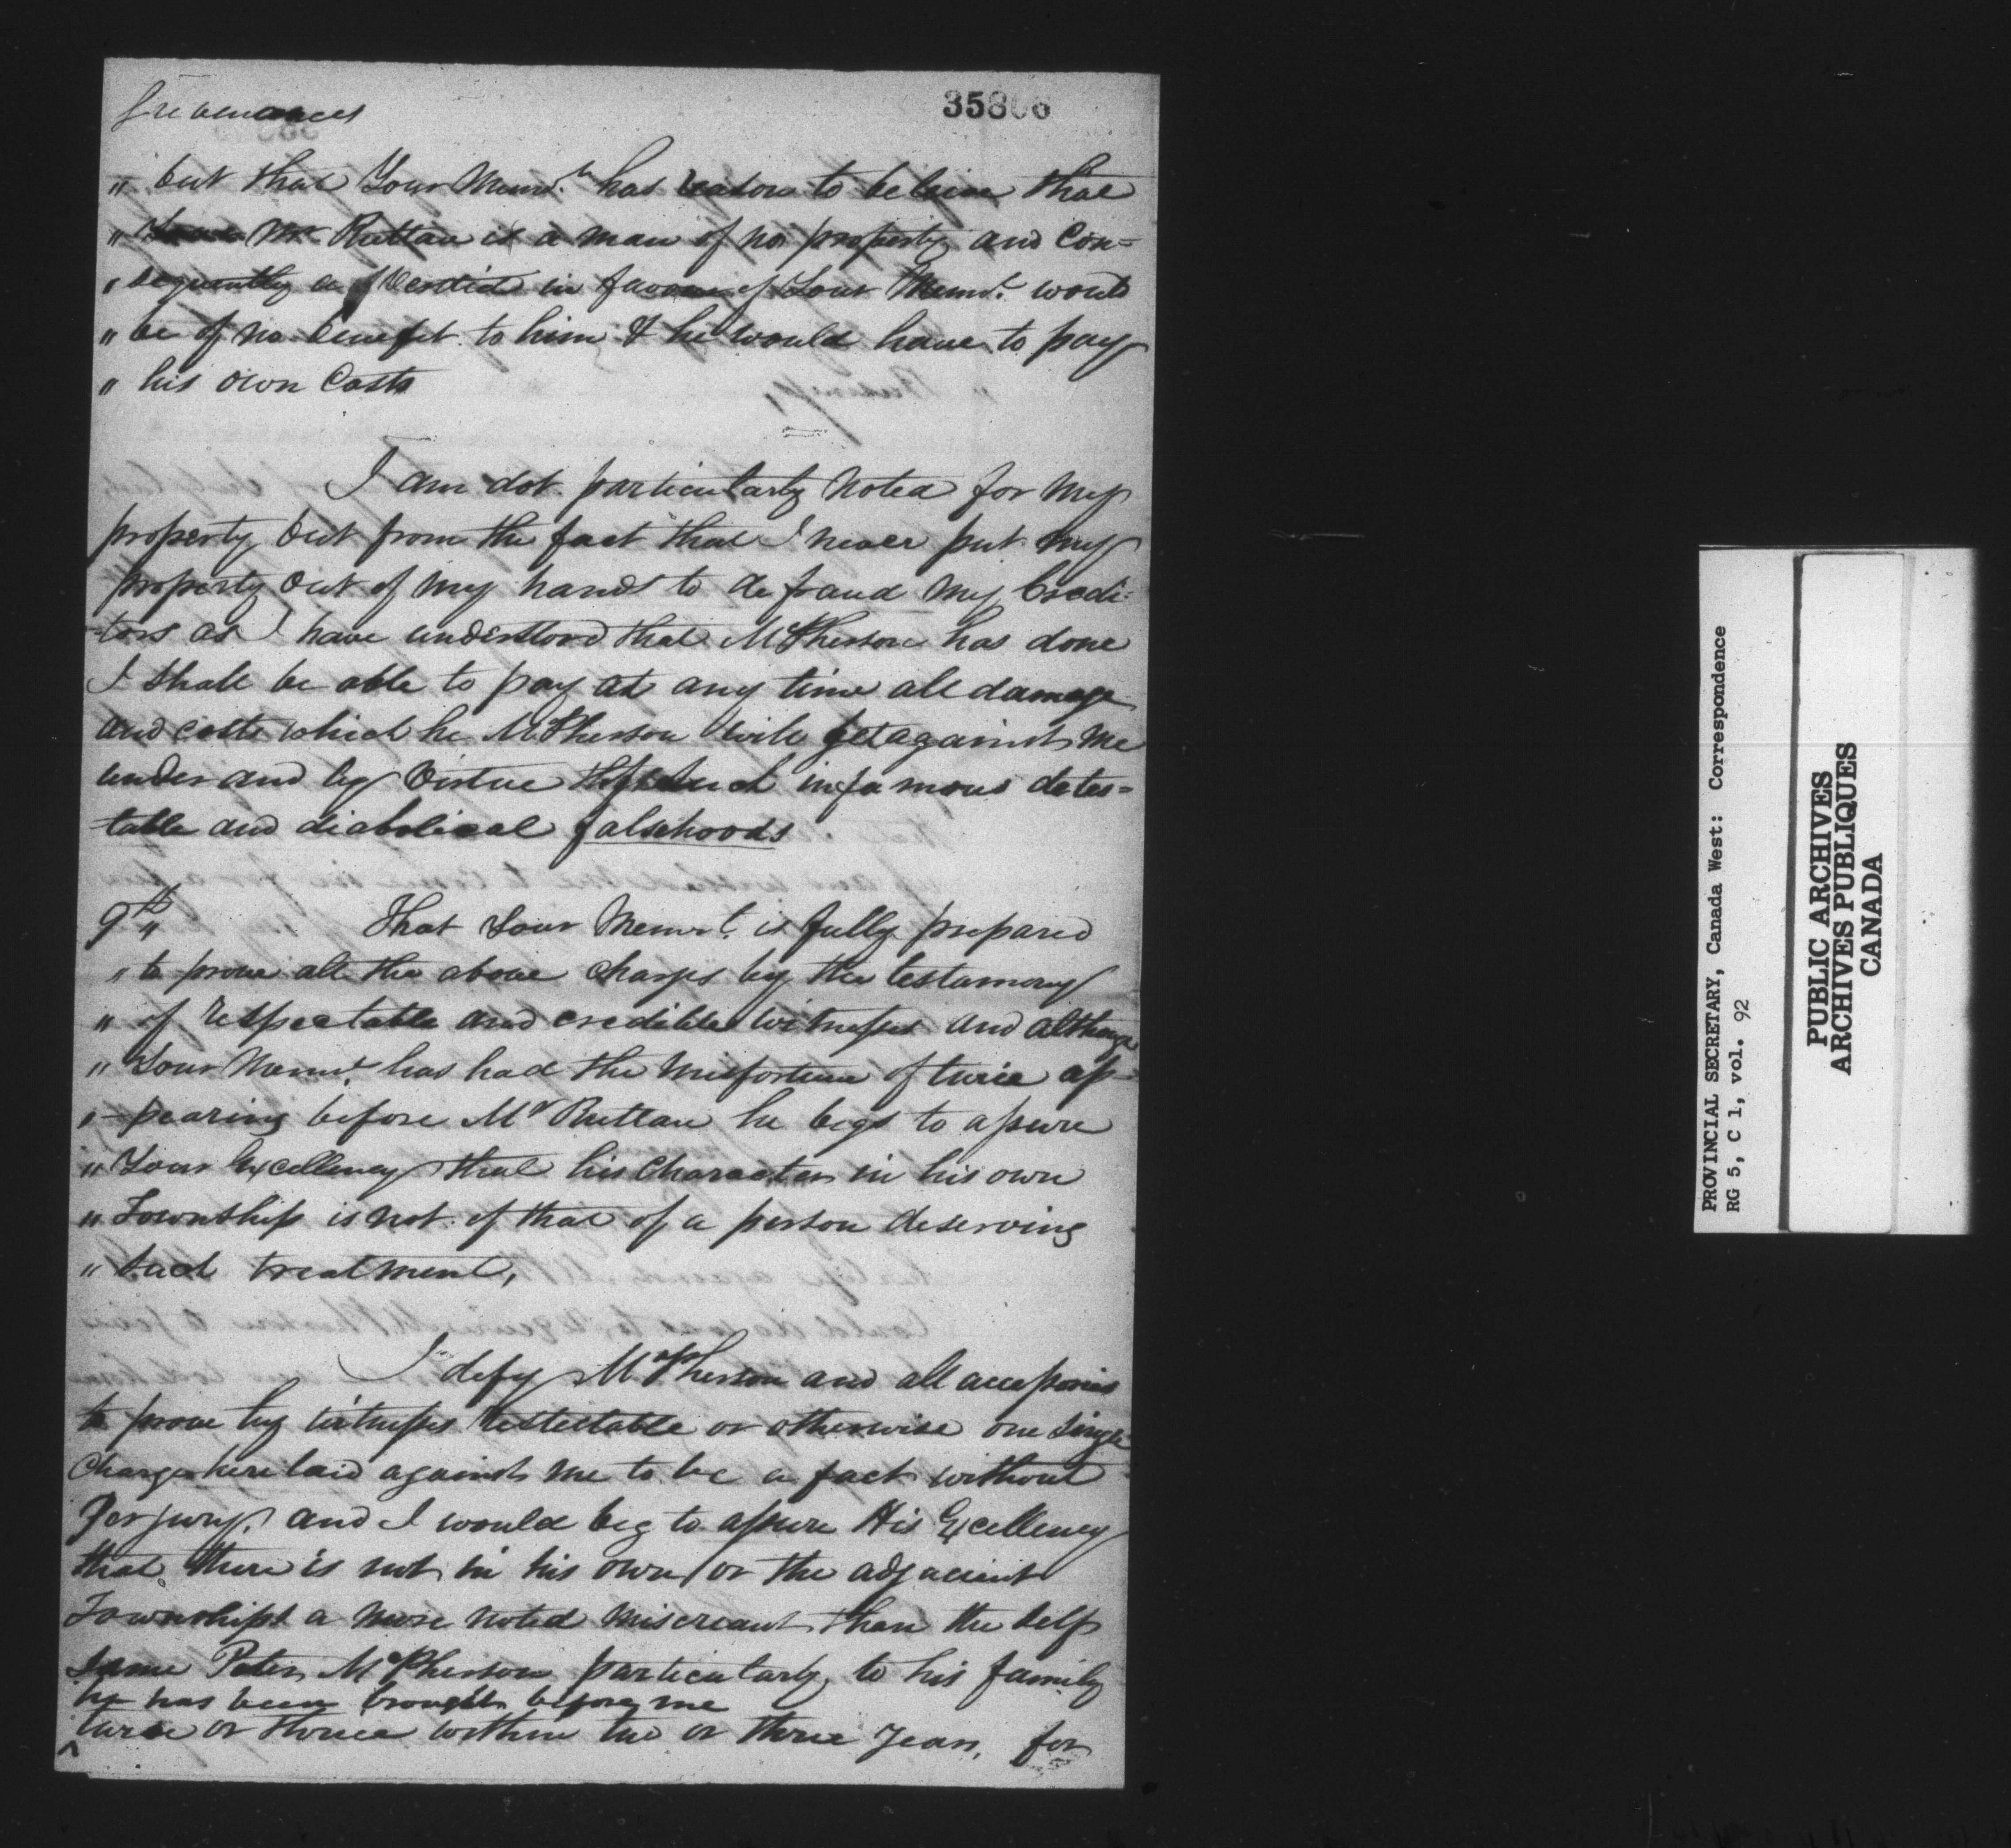 Grievances
35806
" but that Your Memt. has reason to believe that
" Mr Ruttan is a man of no property and Con=
" sequently a Verdict in favour of Your Memt. would
" be of no benefit to him & he would have to pay
" his own Costs
I am not particularly noted for my
property but from the fact that I never put my
property out of my hands to defraud my Credi=
-tors as I have understood that McPherson has done
I shall be able to pay at any time all damage
and costs which he McPherson will get against me
under and by Virtue of such infamous detes=
table and diabolical falsehoods
9th " That Your Memt. is fully prepared
" to prove all the above Charges by the testamony
" of respectable and credible witnesses and although
" Your Memt. has had the misfortune of twice ap-
" -pearing before Mr Ruttan he begs to assure
" Your Excellency that his Character in his own
" Township is not of that of a person deserving
" such treatment,
I defy McPherson and all accessories
to prove by witnesses restectable or otherwise one single
Charge here laid against me to be a fact without
Perjury. and I would beg to assure His Excellency
that there is not in his own or the adjacent
Townships a more noted miscreant than the self
same Peter McPherson particularly to his family
he has been brought before me
twice or thrice within two or three years, for
PROVINCIAL SECRETARY, Canada West: Correspondence
RG 5, C 1, vol. 92
PUBLIC ARCHIVES
ARCHIVES PUBLIQUES
CANADA